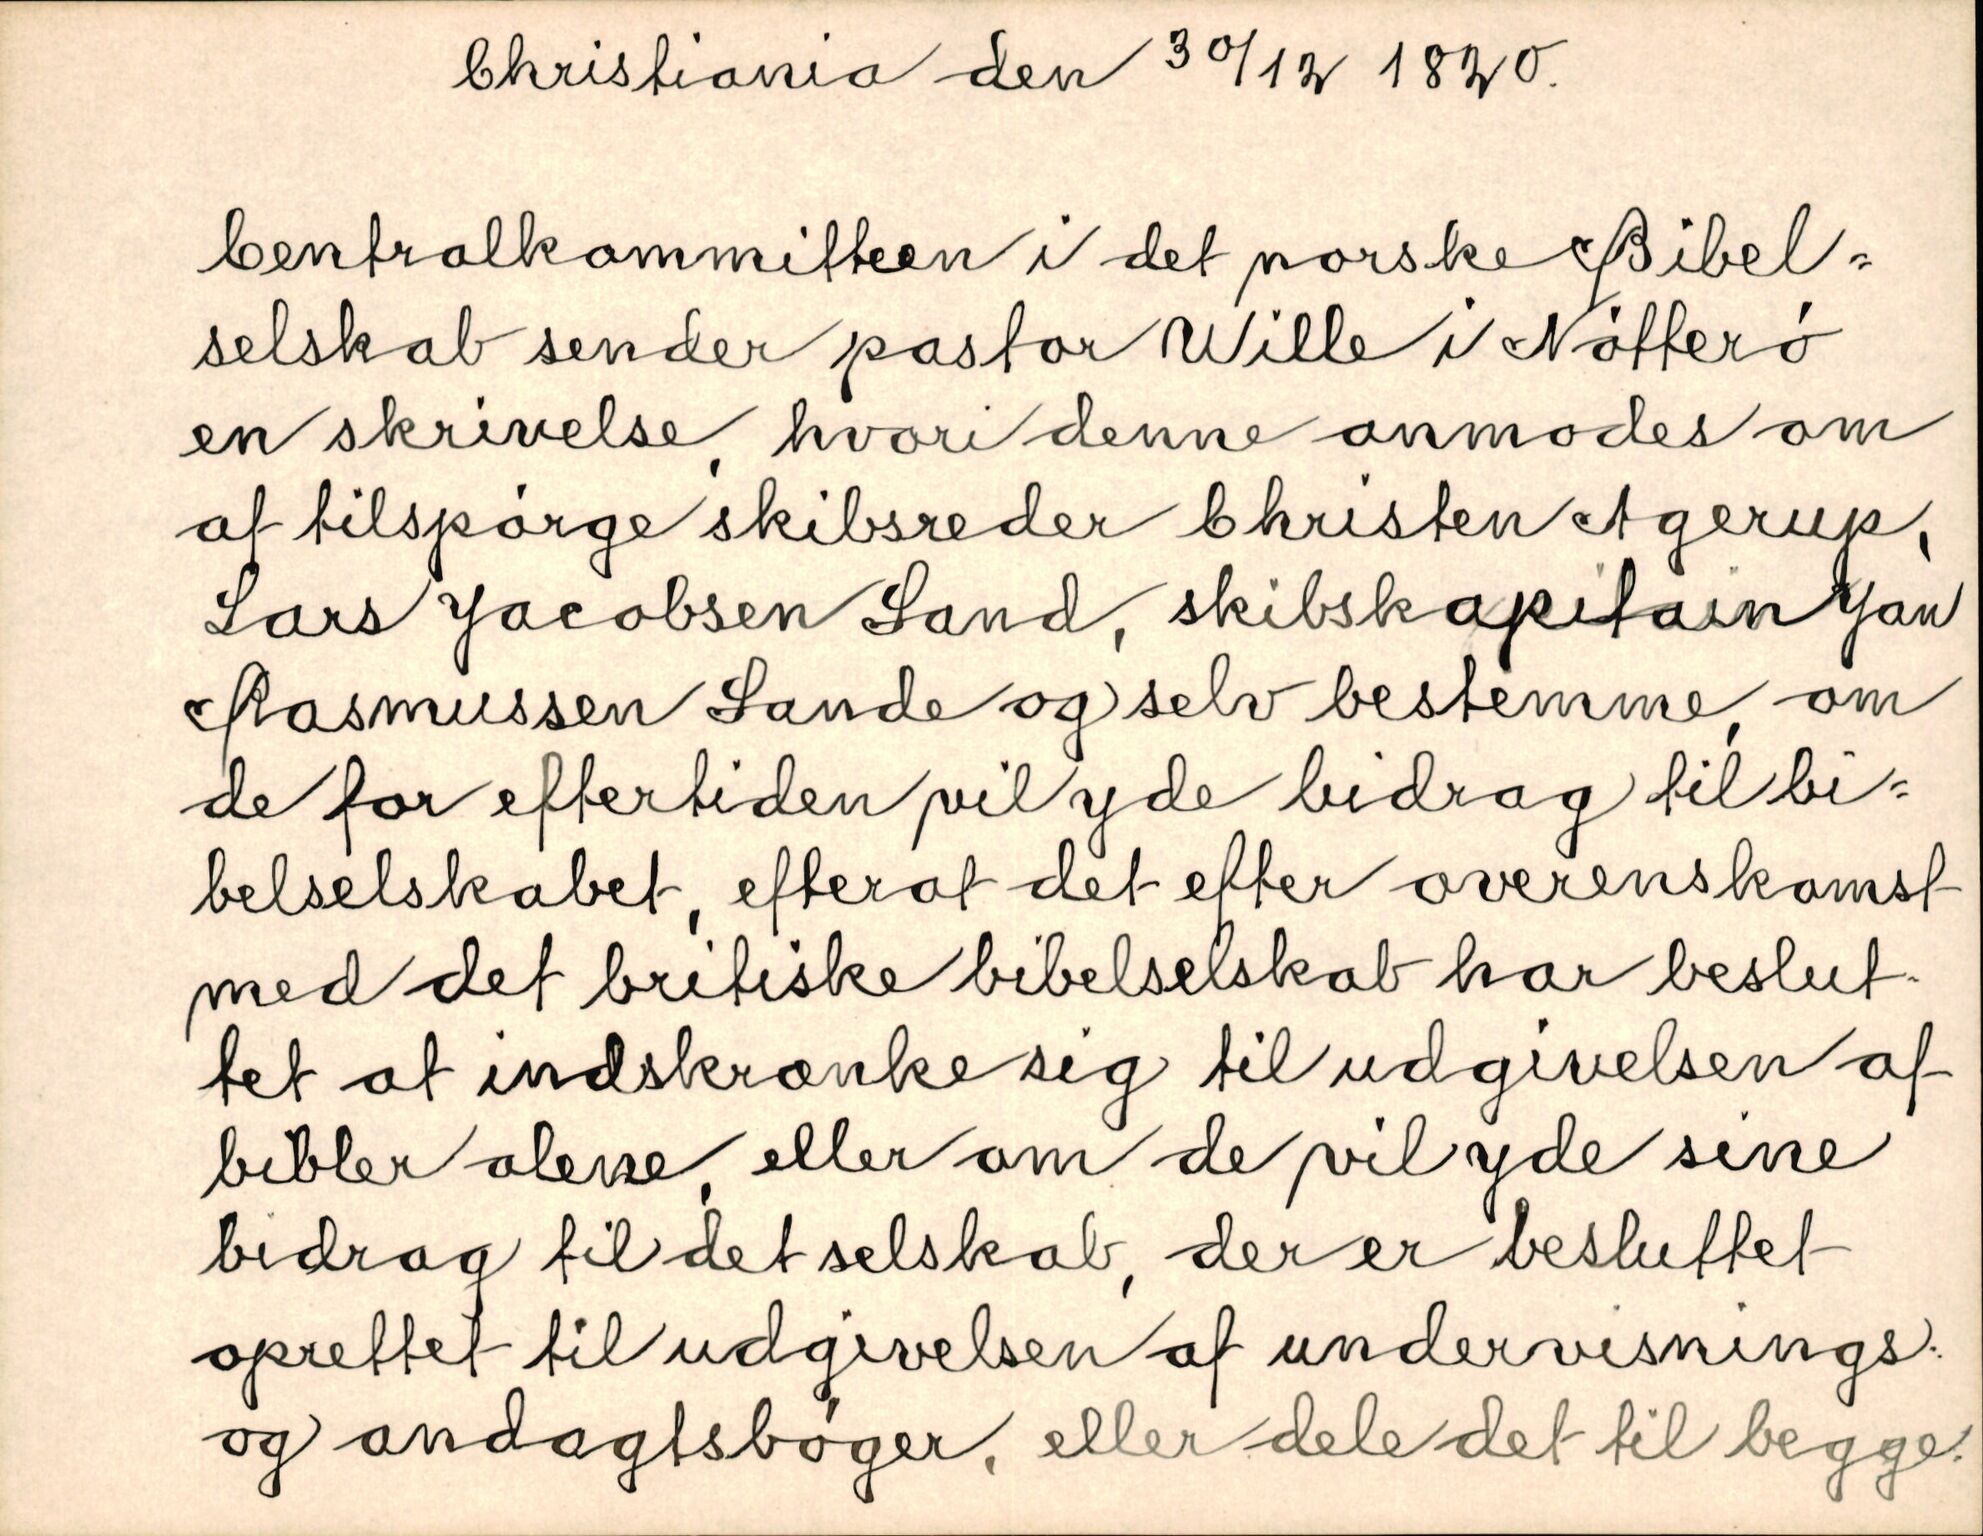 Christiania den 30/12 1820.
Centralkommitteen i det norske Bibel=
selskab sender pastor Wille i Nötterö
en skrivelse, hvori denne anmodes om
at tilspörge skibsreder Christen Agerup,
Lars Jacobsen Sand, skibskapitain Jan
Rasmussen Sande og selv bestemme, om
de for eftertiden vil yde bidrag til bi=
belselskabet, efterat det efter overenskomst
med det britiske bibelselskab har beslut-
tet at indskrænke sig til udgivelsen af
bibler alene, eller om de vil yde sine
bidrag til det selskab, der er besluttet
oprettet til udgivelsen af undervisnings-
og andagtsböger, eller dele det til begge.